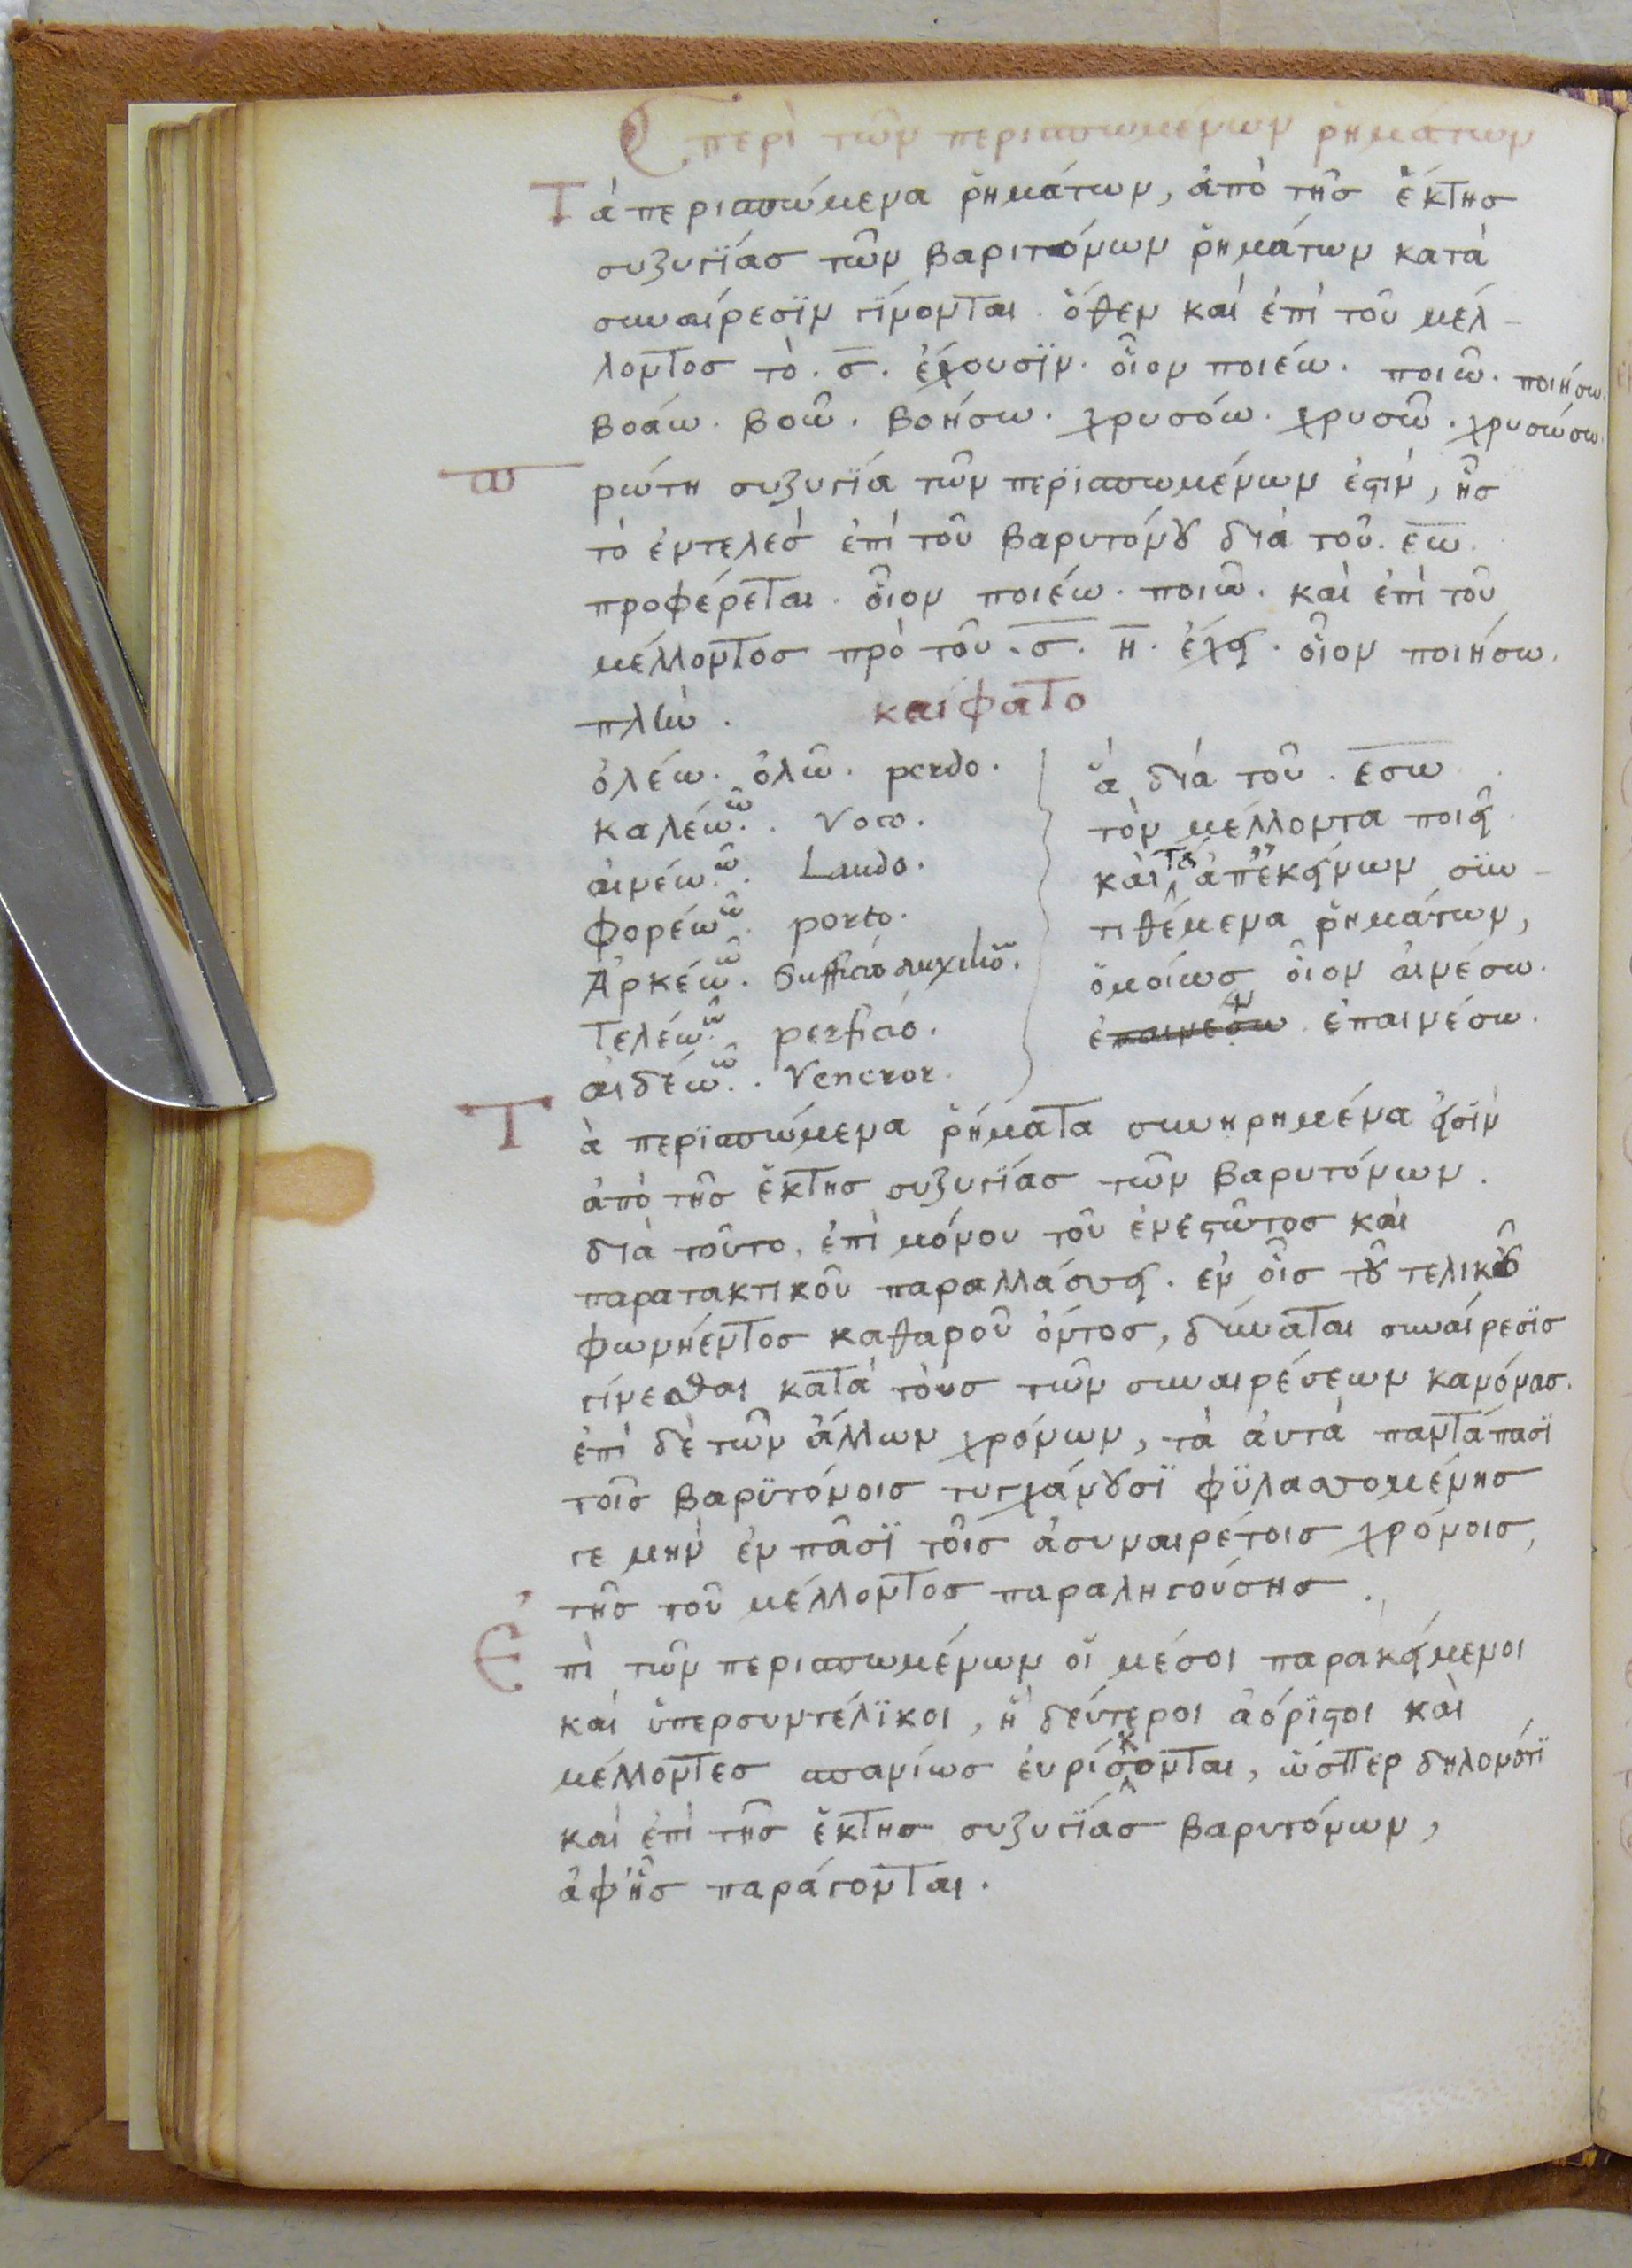 περὶ τῶν περισπωμένων ῥημάτων
Τὰ περισπώμενα ῥημάτων, ἀπὸ τῆς ἕκτης
συζυγίας τῶν βαριτόνων ῥημάτων κατὰ
συναίρεσϊν γίνονται. ὅθεν καὶ ἐπὶ τοῦ μέλ-
λοντος τὸ . σ̅ . ἔχουσϊν. οἷον ποιέω. ποιῶ. ποιήσω.
βοάω. βοῶ. βοήσω. χρυσόω. χρυσῶ. χρυσώσω.
Πρώτη συζυγϊά τῶν περϊισπωμένων ἐστιν, ἧς
τὸ ἐντελὲς ἐπὶ τοῦ βαρυτόνου διὰ τοῦ. εω.
προφέρεται. οἷον ποιέω. ποιῶ. καὶ ἐπὶ τοῦ
μέλλοντος πρὸ τοῦ . σ̅ . η̅ . ἔχει . οἷον ποιήσω.
πλὴν . καίφατο
ὀλέω. ὀλῶ. perdo.
καλέω. ῶ. Voco.
αἰνέω. ῶ. Laudo.
φορέω. ῶ. porto.
Ἀρκέω. ῶ. Sufficio auxilior.
Τελέω. ῶ. perficio.
αἰδέω. ῶ. Veneror.
ἃ διὰ τοῦ . εσω
τὸν μέλλοντα ποιεῖ
καὶ τὰ ἀπ' ἐκείνων συν-
τιθέμενα ῥημάτων,
ὁμοίως οἷον αἰνέσω.
ἐπαινεσω. ἐπαινέσω.
Τὰ περϊσπώμενα ῥήματα συνηρημένα εἰσϊν
ἀπὸ τῆς ἕκτης συζυγϊάς τῶν βαρυτόνων.
διὰ τοῦτο, ἐπὶ μόνου τοῦ ἐνεστῶτος καὶ
παρατακτικοῦ παραλλάσσει. ἐν οἷς τοῦ τελικοῦ
φωνήεντος καθαροῦ ὄντος, δύναται συναίρεσϊς
γίνεσθαι κατὰ τοὺς τῶν συναιρέσεων κανόνας.
ἐπὶ δὲ τῶν ἄλλων χρόνων, τὰ ἀυτὰ παντάπασϊ
τοῖς βαρϋτόνοις τυγχάνουσϊ φϋλαττομένης
γε μὴν ἐν πᾶσϊ τοῖς ἀσυναιρέτοις χρόνοις,
τῆς τοῦ μέλλοντος παραληγούσης.
Ἐπὶ τῶν περισπωμένων οἱ μέσοι παρακείμενοι
καὶ ὑπερσυντέλϊκοι, ἢ δεύτεροι ἀόρϊστοι καὶ
μέλλοντες σπανίως ἑυρίσκονται, ὥσπερ δηλονότϊ
καὶ ἐπὶ τῆς ἕκτης συζυγϊάς βαρυτόνων,
ἀφ' ἧς παράγονται.